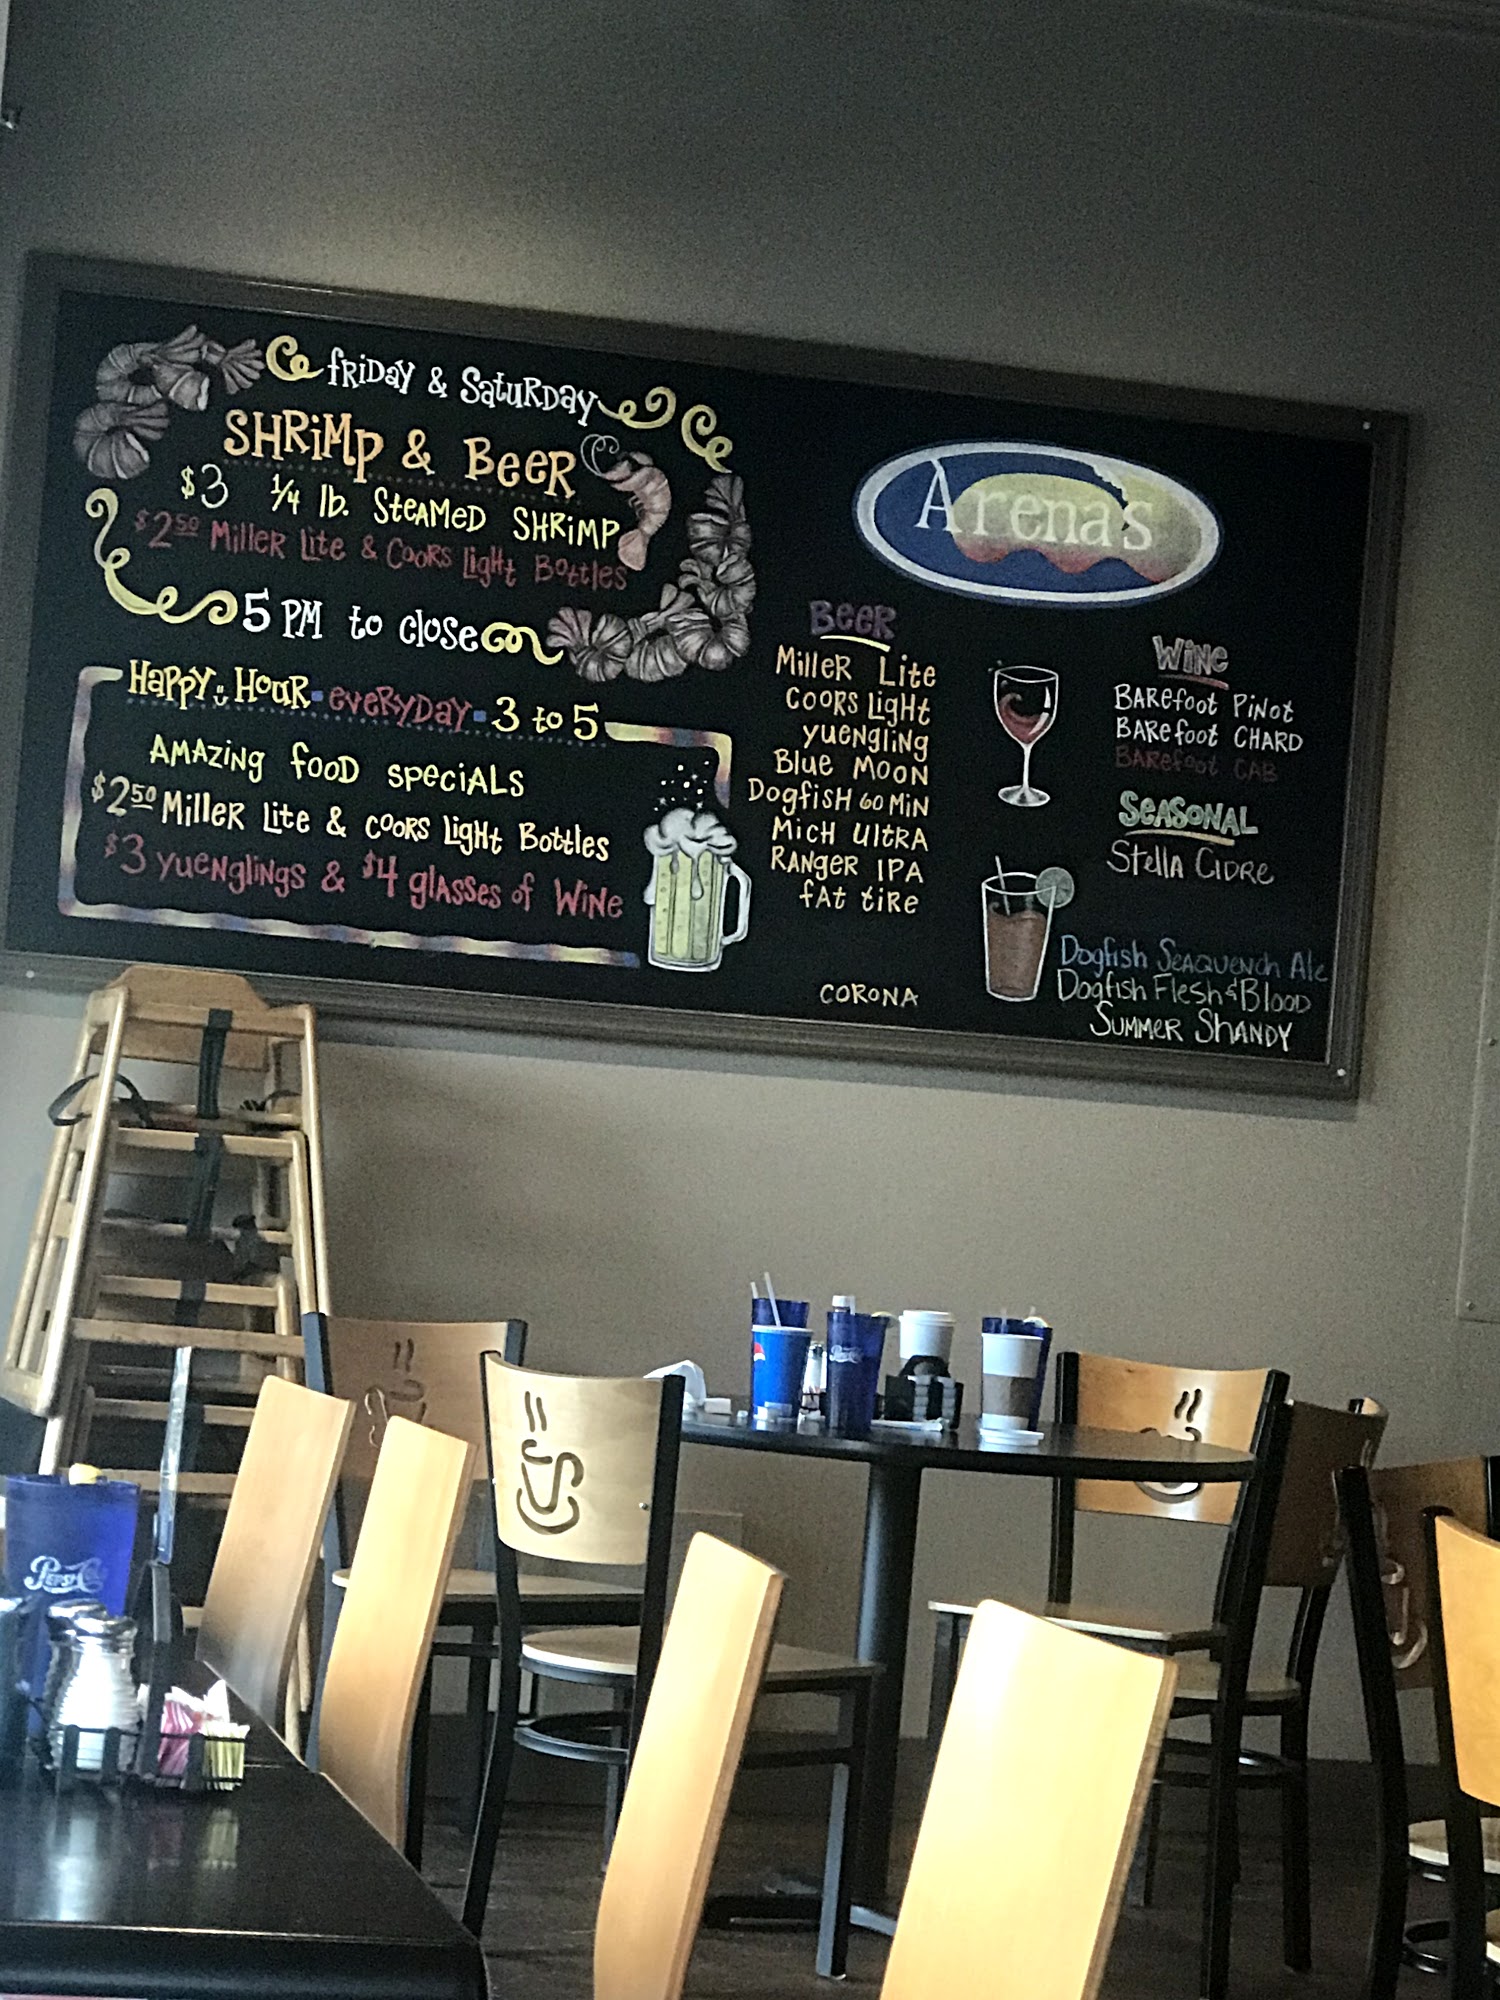 Friday & Saturday
Shrimp & Beer
$3 1/4 lb. Steamed Shrimp
$2.50 Miller Lite & Coors Light Bottles
5 PM to close
Happy Hour everyday 3 to 5
Amazing food specials
$2.50 Miller Lite & Coors Light Bottles
$3 Yuenglings & $4 glasses of Wine
Arena's
Beer
Miller Lite
Coors Light
Yuengling
Blue Moon
Dogfish 60 Min
Mich Ultra
Ranger IPA
Fat Tire
Corona
Wine
Barefoot Pinot
Barefoot Chard
Barefoot Cab
Seasonal
Stella Cidre
Dogfish SeaQuench Ale
Dogfish Flesh & Blood
Summer Shandy
Pepsi-Cola